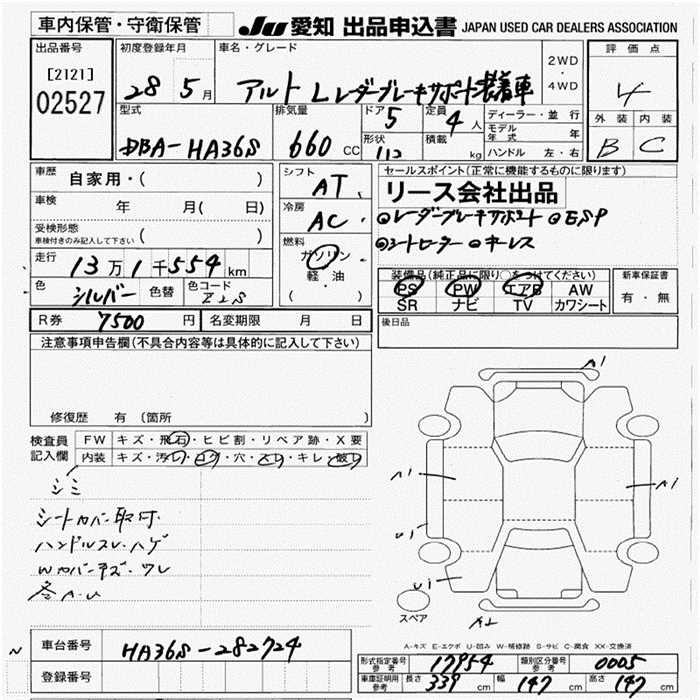 車内保管・守衛保管
JU 愛知 出品申込書 JAPAN USED CAR DEALERS ASSOCIATION
出品番号
[2121]
02527
初度登録年月
28 5月
車名・グレード
アルト L レーダーブレーキサポート装着車
2WD
・
4WD
評価点
4
外装 内装
B C
型式
DBA-HA36S
排気量
660 CC
ドア 5
形状
定員 4 人
積載 kg
ディーラー・並行
モデル年式 年
ハンドル 左・右
車歴 自家用・( )
車検 年 月( 日)
受検形態
車検付きのみ記入して下さい ( )
走行 13万1千554km
色 シルバー 色替 色コード Z2S
シフト AT
冷房 AC
燃料
ガソリン
軽・油
( )
セールスポイント(正常に機能するものに限ります)
リース会社出品
◎レーダーブレーキサポート ◎ESP
◎シートヒーター ◎キーレス
装備品(純正品に限り○をつけてください)
PS PW エアB AW
SR ナビ TV カワシート
新車保証書
有・無
R券 7500 円 名変期限 月 日
後日品
注意事項申告欄(不具合内容等は具体的に記入して下さい)
修復歴 有(箇所 )
検査員記入欄
FW キズ・飛石・ヒビ割・リペア跡・X要
内装 キズ・汚レ・コゲ・穴・スレ・キレ・破レ
シミ
シートカバー取付
ハンドルスレ・ハゲ
Wカバーキズ・ワレ
各A・U
A1
A1
A1
U1
U1
A2
スペア
A-キズ E-エクボ U-凹み W-補修跡 S-サビ C-腐食 XX-交換済
車台番号 HA36S-282724
登録番号
形式指定番号 参考 17954 類別区分番号 参考 0005
車庫証明用 参考 長さ 339 cm 幅 147 cm 高さ 147 cm